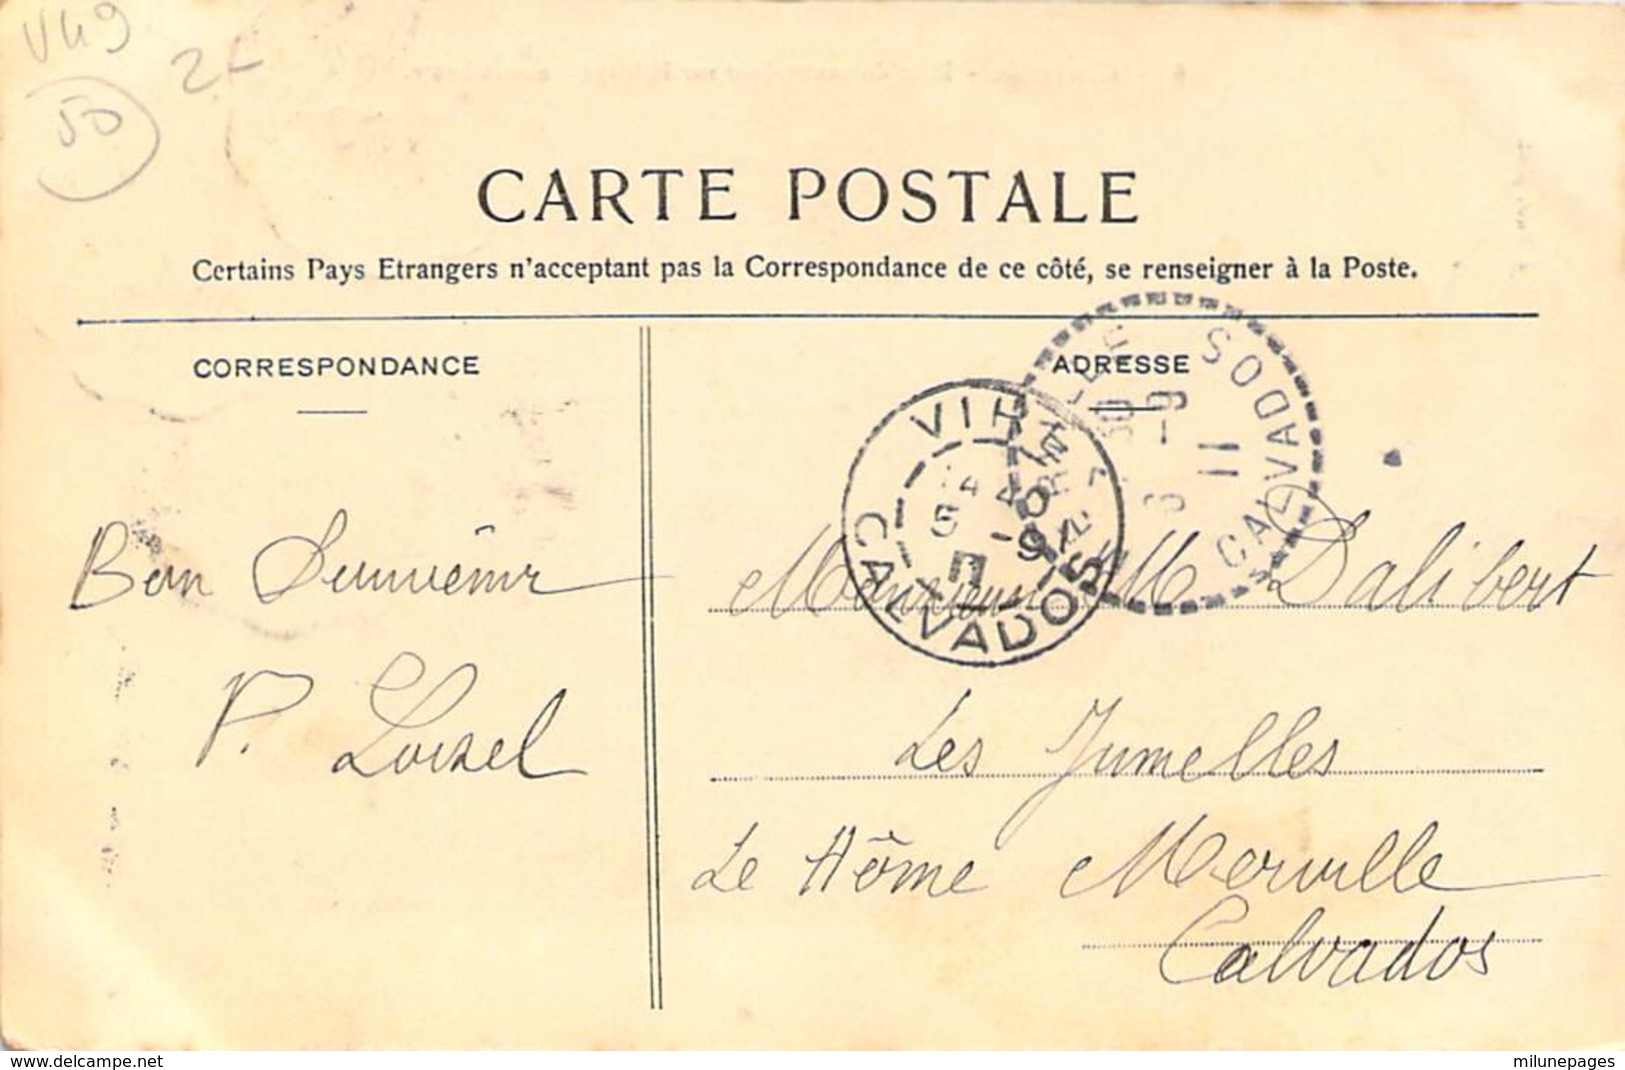 V49
2-
50
CARTE POSTALE
Certains Pays Etrangers n'acceptant pas la Correspondance de ce côté, se renseigner à la Poste.
CORRESPONDANCE
ADRESSE
VIRE
CALVADOS
CALVADOS
11
Bon Souvenir
P. Loisel
Monsieur M Dalibert
Les Jumelles
Le Hôme Merville
Calvados
www.delcampe.net
milunepages